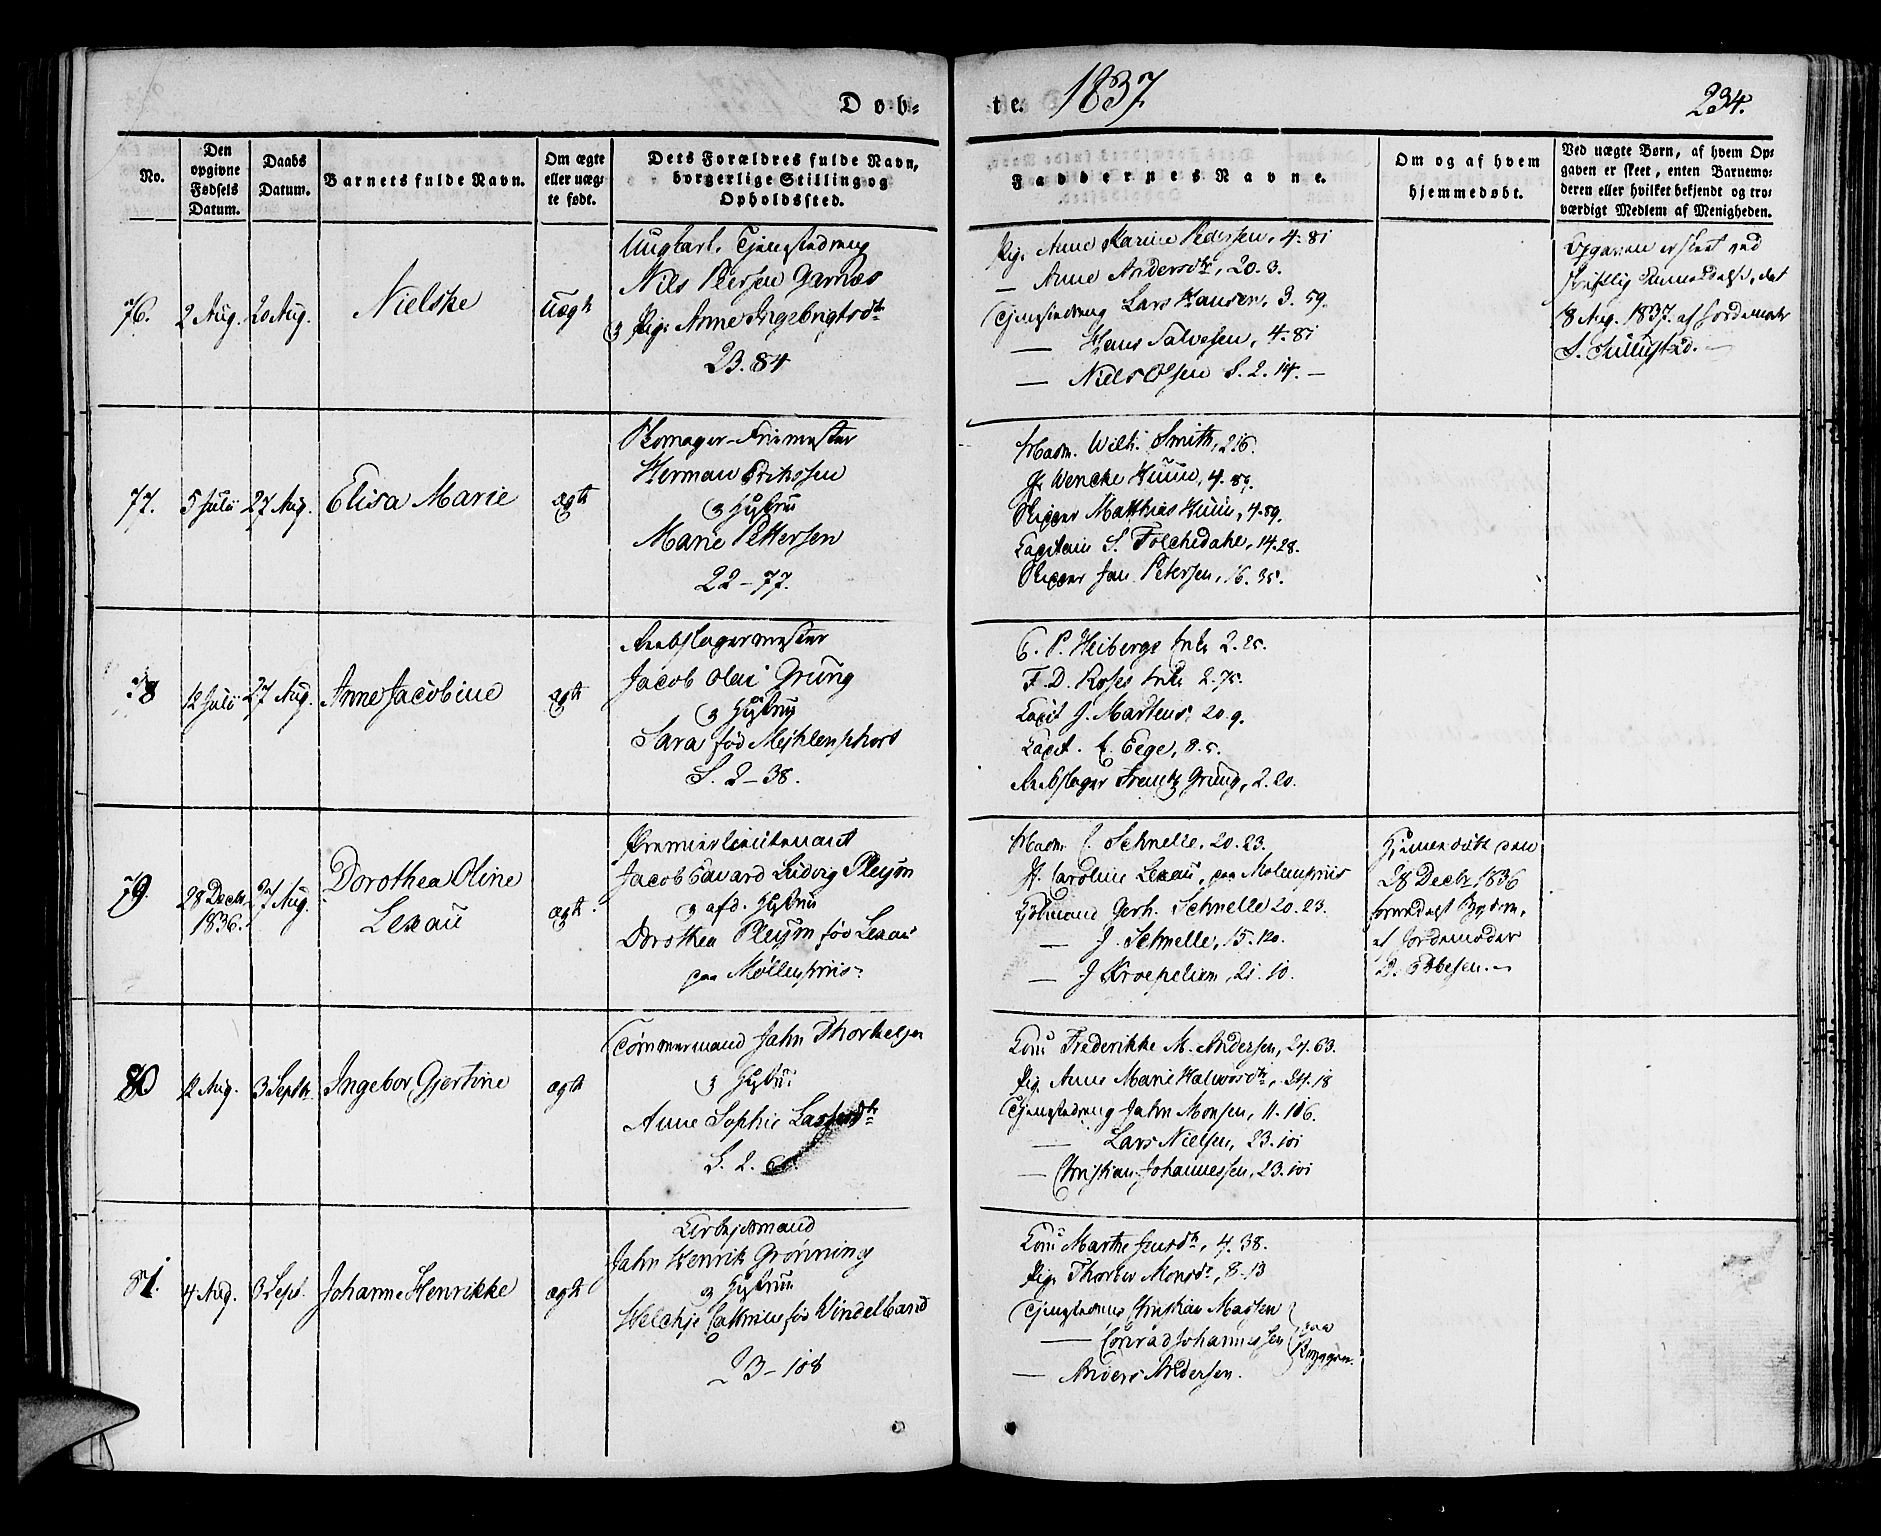 Dob-
te. 1837
234.
No.
Den
opgivne
Fødsels
Datum.
Daabs
Datum.
Barnets fulde Navn.
Om ægte
eller uæg-
te født.
Dets Forældres fulde Navn,
borgerlige Stilling og
Opholdssted.
Faddernes Navne.
Om og af hvem
hjemmedøbt.
Ved uægte Børn, af hvem Op-
gaven er skeet, enten Barnemo-
deren eller hvilket bekjendt og tro-
værdigt Medlem af Menigheden.
76.
2 Aug.
20 Aug.
Nielske
Uægte
Ungkarl, Tjenestedreng
Nils Peersen Garnæs
og Pige Anne Ingebrigtsdtr
23. 84
Pige Anne Karine Pedersen, 4. 81
— Anne Andersdtr, 20. 3.
Tjenestedreng Lars Hansen, 3. 59.
— Hans Salvesen, 4. 81
— Niels Olsen S. 2. 14. —
Opgaven er skeet ved
skriftlig Anmeldelse, det
8 Aug. 1837. af Jordemoder
77.
5 Juli
27 Aug.
Elisa Marie
ægte
Skomager-Friemester
Herman Erikssen
og Hustru
Marie Pettersen
22 - 77.
Mad. Wilh. Smith, 2.
Wencke Huun, 4. 89.
Skipper Matthias Huun, 4. 89.
Capitain S. Folchedahl, 14. 28.
Skipper Jan Petersen, 16. 35.
78
12 Juli
27 Aug.
Anne Jacobine
ægte
Reebslagermester
Jacob Olai Grung
og Hustru
Sara fød Mejhlenphort
S. 2 - 38.
C. P. Heibergs Enke 2. 25.
F. D. Roses Enke 2. 75.
Capit J. Martens, 20. 9.
Capit. E. Eege, 8. 5.
Reebslager Frantz Grung, 2. 20.
79.
28 Decbr
1836.
27 Aug.
Dorothea Oline
Lexau
ægte.
Premierlieutenant
Jacob Edvard Ludvig Pleym
og afd. Hustru
Dorothea Pleym fød Lexau
paa Møllenpriis
Mad. C. Schnelle, 20. 23.
Caroline Lexau, paa Mølenpriis
Kjøbmand Gerh. Schnelle 20. 23.
— J. Schnelle, 15. 120.
— J Kroepelien, 21. 10.
Hjemmedøbt den
28 Decbr 1836
af Jordemoder
80
12 Aug.
3 Septbr
Ingebor Gjertine
ægte
Tømmermand Jahn Thorkelsen
og Hustru
Anne Sophie
S. 2.
Konu Frederikke M. Andersen, 24. 63.
Pige Anne Marie Halvorsdtr, 24. 18
Tjenestedreng Jahn Monsen, 11. 106.
— Lars Nielsen, 23. 101
— Christian Johannessen, 23. 101
81.
4 Aug.
3 Sept.
Johanne Henrikke
ægte
Arbejdsmand
Jahn Henrik Grønning
og Hustru
Welchje Cathrine fød Windelband
23 - 108
Konu Marthe Jensdtr, 4. 38.
Pige Thorber Monsdtr, 8. 13
Tjenestedreng Christian Madsen
— Conrad Johannessen
— Anders Andersen.
paa
Ryggen.